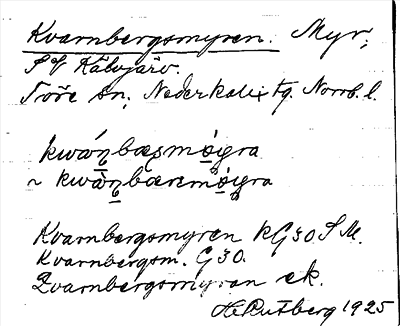 Kvarnbergsmyren. Myr,
SV Kälvjärv.
Töre sn, Nederkalix tg. Norrb. l.
kwáṇbæsmo̱i̯gra
~ kwàṇbæremo̱i̯gra
Kvarnbergsmyren kG30 S M.
Kvarnbergsm. G 30.
Qvarnbergsmyran ek.
H. Rutberg 1925